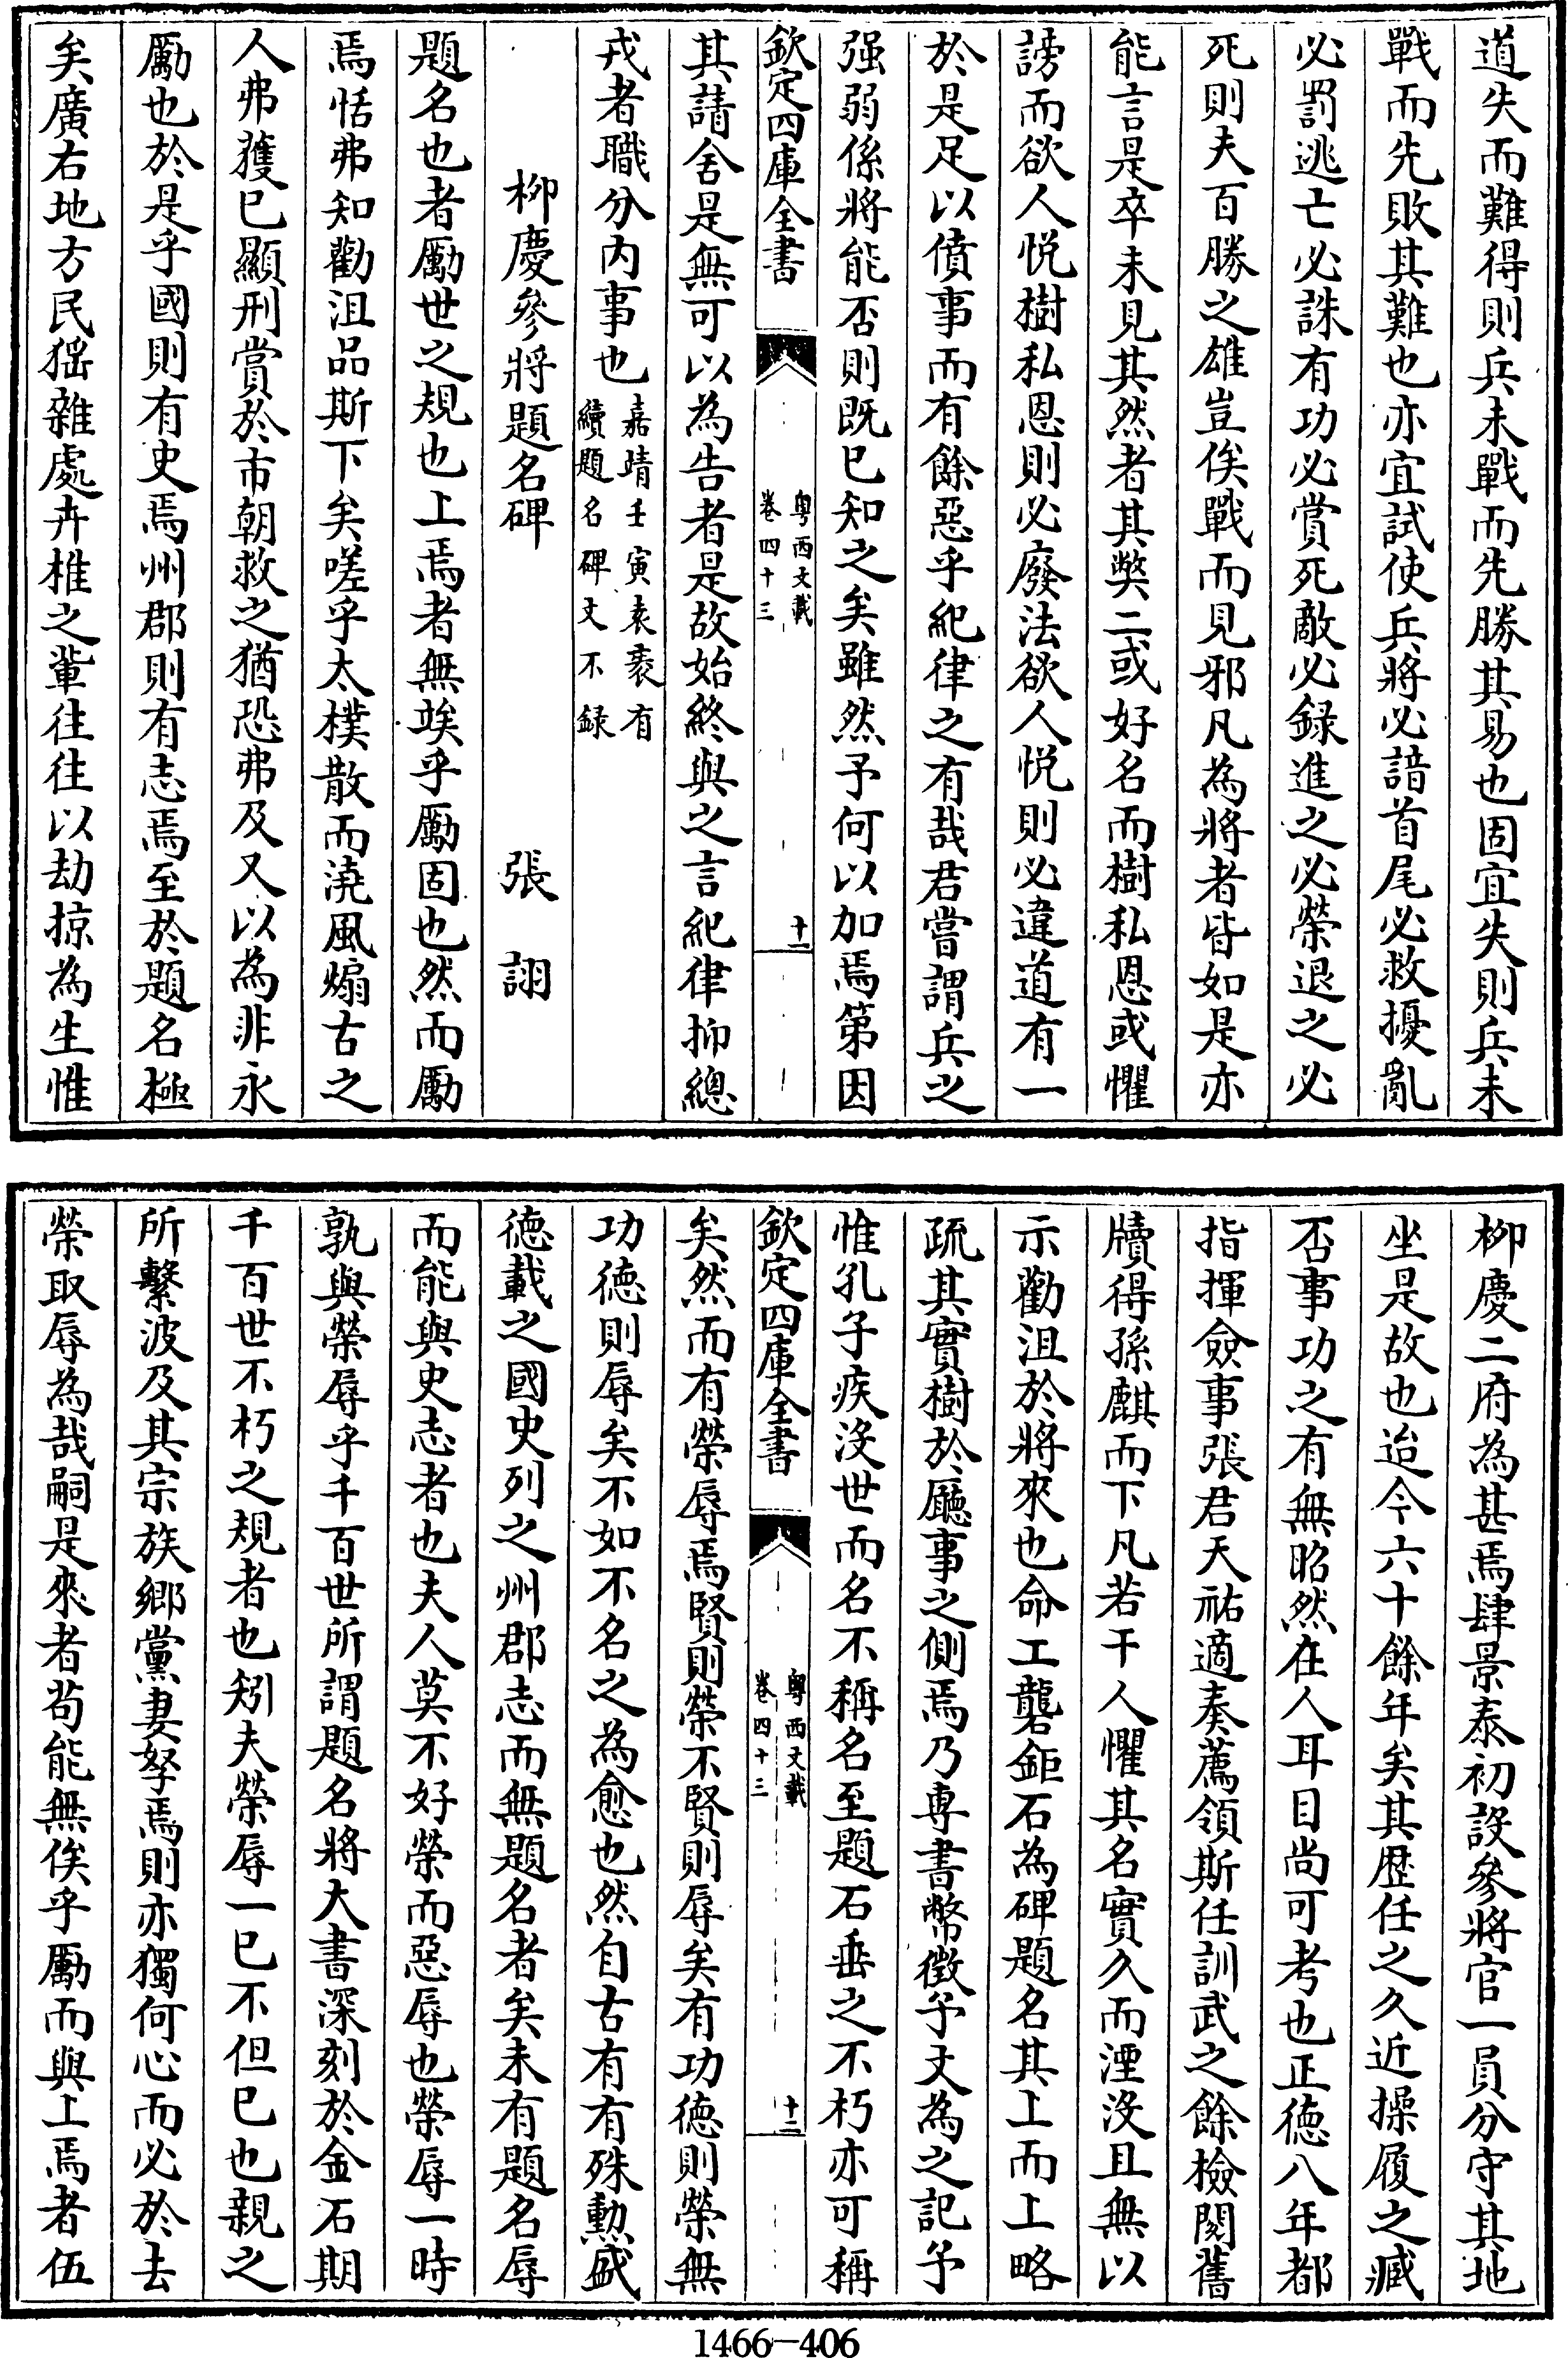 道失而難得則兵未戰而先勝其易也固宜失則兵未
戰而先敗其難也亦宜試使兵將必諳首尾必救擾亂
必罰逃亡必誅有功必賞死敵必録進之必榮退之必
死則夫百勝之雄豈俟戰而見邪凡為將者皆如是亦
能言是卒未見其然者其獘二或好名而樹私恩或懼
謗而欲人悦樹私恩則必廢法欲人悦則必違道有一
於是足以僨事而有餘惡乎紀律之有哉君嘗謂兵之
强弱係將能否則既已知之矣雖然予何以加焉第因
欽定四庫全書
粤西文載
卷四十三
十一
其請舍是無可以為告者是故始終與之言紀律抑總
戎者職分内事也
嘉靖壬寅袁袠有
續題名碑文不録
柳慶參將題名碑
張詡
題名也者勵世之規也上焉者無竢乎勵固也然而勵
焉恬弗知勸沮品斯下矣嗟乎太樸散而澆風煽古之
人弗獲已顯刑賞於市朝救之猶恐弗及又以為非永
勵也於是乎國則有史焉州郡則有志焉至於題名極
矣廣右地方民猺雜處卉椎之輩往往以劫掠為生惟
柳慶二府為甚焉肆景泰初設參將官一員分守其地
坐是故也迨今六十餘年矣其歴任之久近操履之臧
否事功之有無昭然在人耳目尚可考也正德八年都
指揮僉事張君天祐適奏薦領斯任訓武之餘檢閲舊
牘得孫麒而下凡若干人懼其名實久而湮没且無以
示勸沮於將來也命工礱鉅石為碑題名其上而上略
疏其實樹於廳事之側焉乃專書幣徵予文為之記予
惟孔子疾没世而名不稱名至題石垂之不朽亦可稱
欽定四庫全書
粤西文載
卷四十三
十二
矣然而有榮辱焉賢則榮不賢則辱矣有功德則榮無
功德則辱矣不如不名之為愈也然自古有有殊勲盛
德載之國史列之州郡志而無題名者矣未有題名辱
而能與史志者也夫人莫不好榮而惡辱也榮辱一時
孰與榮辱乎千百世所謂題名將大書深刻於金石期
千百世不朽之規者也矧夫榮辱一已不但已也親之
所繫波及其宗族鄉黨妻孥焉則亦獨何心而必於去
榮取辱為哉嗣是來者苟能無俟乎勵而與上焉者伍
1466-406